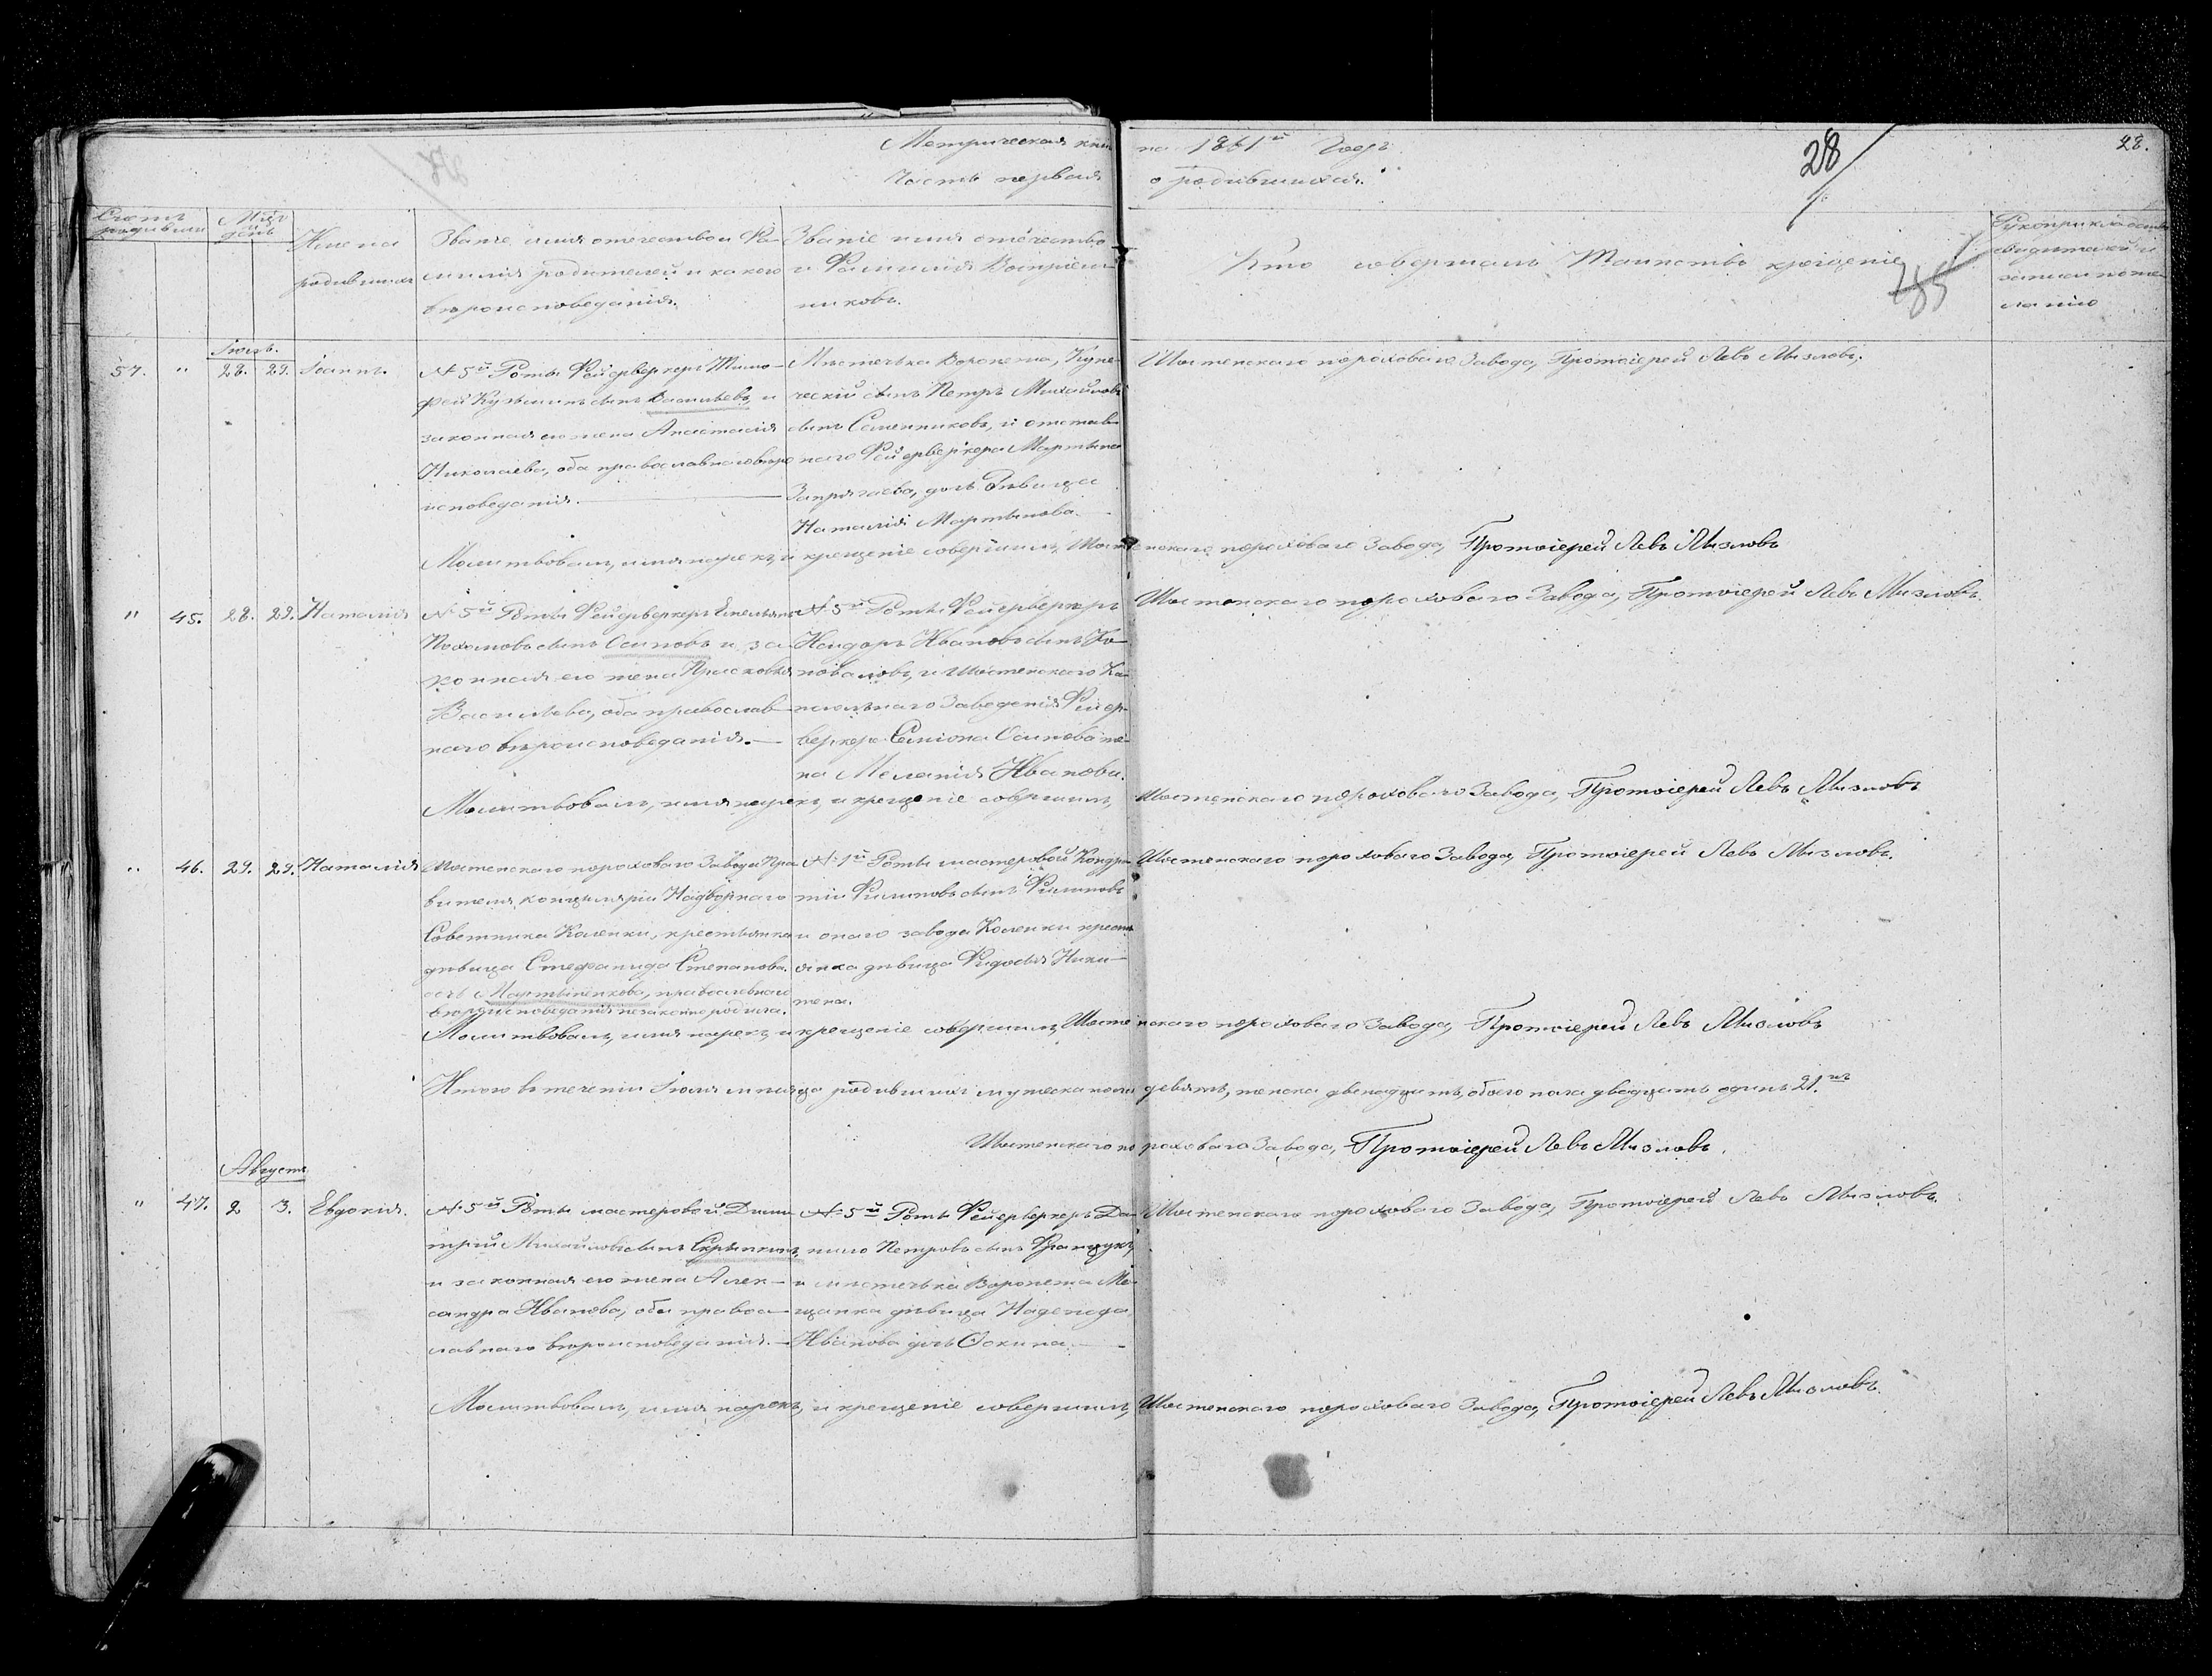 Метрическая кни на 1861й Годъ
Часть первая о родившихся.
28
28.
Счетъ родивших
Мцъ и день
Имена родившихся
Званіе, имя отечество и Фамилія родителей и какого вѣроисповеданія.
Званіе имя отечество и Фамилія Воспріемниковъ.
Кто совершалъ Таинство крещенія
185
Рукоприкладство свидетелей и записи по желанію
Іюль.
57. " 28. 29. Іоаннъ.
№ 5й Роты Фейерверкеръ Тимофей Кузьминъ сынъ Васильевъ, и
законная его жена Анастасія
Николаева, оба православнаго веро
исповеданія.
Местечка Воронежа, Купе-
ческій сынъ Петръ Михайловъ
сынъ Семенниковъ, и отстав-
наго Фейерверкера Мартына
Запрягаева, дочь Девица
Наталія Мартынова.
Шостенскаго пороховаго Завода, Протоіерей Левъ Мизловъ.
Молитвовалъ, имя нарекъ, и крещеніе совершилъ, Шостенскаго пороховаго Завода, Протоіерей Левъ Мизловъ
" 45. 28. 29. Наталія
№ 5й Роты Фейерверкеръ Емельянъ
Пахомовъ сынъ Осиповъ и за-
конная его жена Прасковья
Васильева, оба православ-
наго вероисповеданія.
№ 5й Роты Фейерверкеръ
Исидоръ Ивановъ сынъ Ко-
новаловъ, и Шостенскаго Ка-
псюльнаго Заведенія Фейер-
веркера Семіона Осипова же-
на Меланія Иванова.
Шостенскаго пороховаго Завода, Протоіерей Левъ Мизловъ.
Молитвовалъ, имя нарекъ, и крещеніе совершилъ, Шостенскаго пороховаго Завода, Протоіерей Левъ Мизловъ
" 46. 29. 29. Наталія
Шостенскаго пороховаго Завода Пра-
вителя канцеляріи Надворнаго
Советника Каленки, крестьянка
девица Стефанида Степанова
дочь Мартыненкова, православнаго
вероисповеданія незаконно родила.
№ 1й Роты мастеровой Кондра-
тій Филиповъ сынъ Филиповъ
и онаго завода Коленки крест-
янка девица Фидосія Ники-
тена.
Шостенскаго пороховаго Завода, Протоіерей Левъ Мизловъ.
Молитвовалъ, имя нарекъ, и крещеніе совершилъ, Шостенскаго пороховаго Завода, Протоіерей Левъ Мизловъ
Итого въ теченіи Іюля месяца родившихся мужеска пола девять, женска двенадцать, обоего пола двадцать одинъ 21.нъ
Шостенскаго пороховаго Завода, Протоіерей Левъ Мизловъ.
Августъ
" 47. 2 3. Евдокія.
№ 5й Роты мастеровой Дими-
трій Михайловъ сынъ Скрыпкинъ,
и законная его жена Алек-
сандра Иванова, оба правос-
лавнаго вероисповеданія.
№ 5й Роты Фейерверкеръ Да-
нило Петровъ сынъ Францукъ,
и местечка Воронежа Ме-
щанка девица Надежда
Иванова дочь Оскина.
Шостенскаго пороховаго Завода, Протоіерей Левъ Мизловъ.
Молитвовалъ, имя нарекъ, и крещеніе совершилъ, Шостенскаго пороховаго Завода, Протоіерей Левъ Мизловъ.